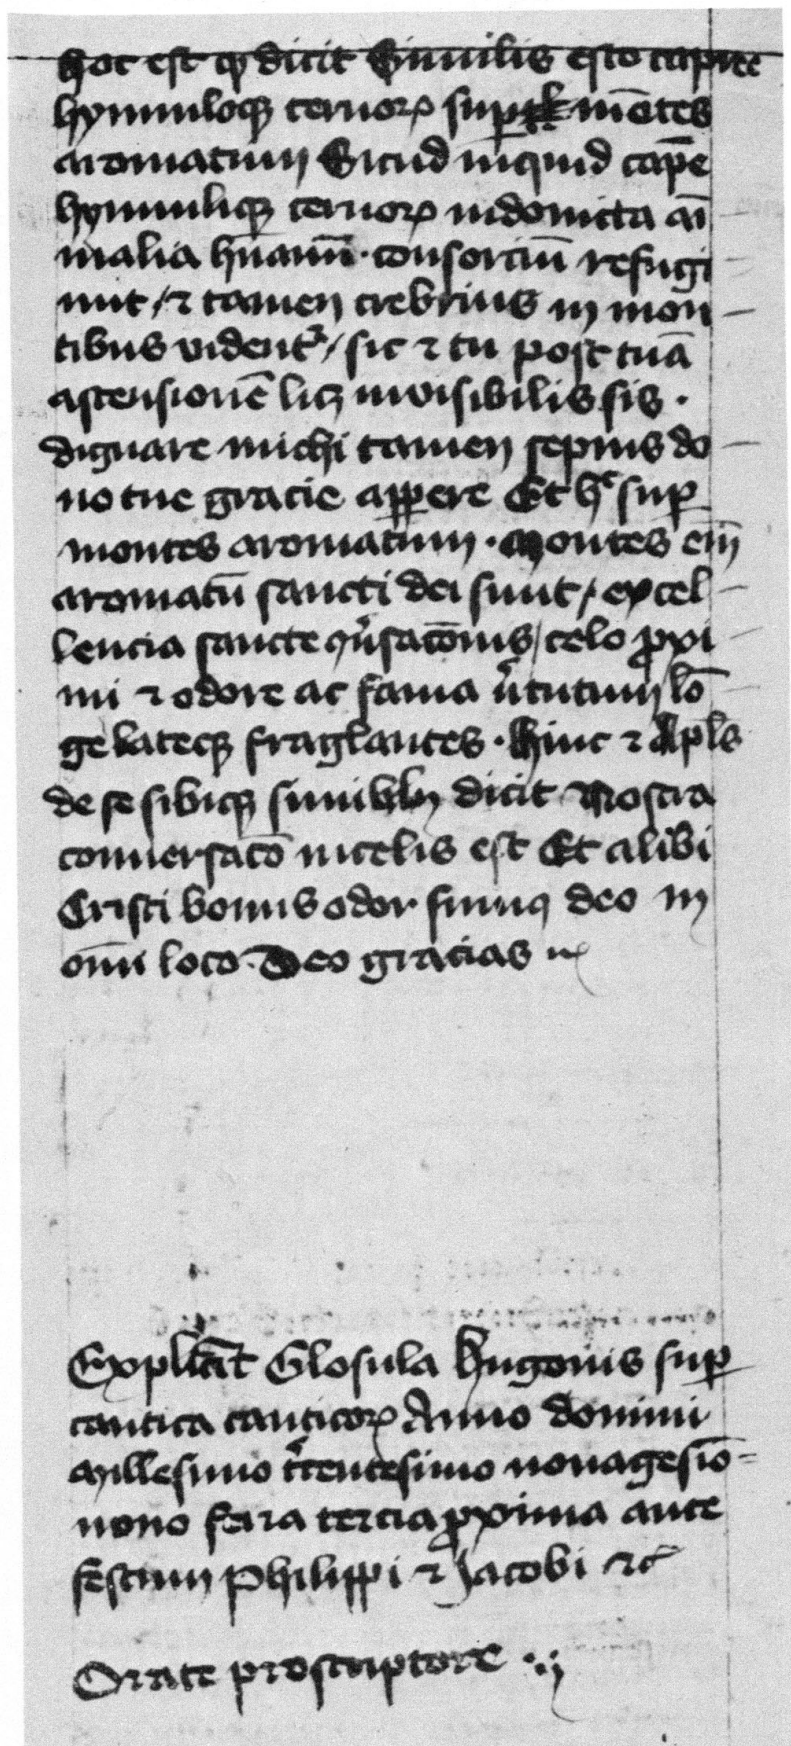 Hoc est qd dicit Similis esto capree
hynnuloqꝫ ceruorꝝ suꝑ mōtes
aromatum Sicud inquid capē
hynnuliqꝫ ceruorꝝ indomita aī
malia hūanū · consorciū refugi
unt / et tamen crebrius in mon
tibus vident᷑ / sic et tu post tuā
ascensionē licꝫ inuisibilis sis ·
dignare michi tamen sepius do
no tue gracie aꝑꝑere Et hͨ suꝑ
montes aromatum · Montes eīm
aromatū sancti dei sunt / excel
lencia sancte ꝯuͥsacōnis / celo ꝓxi
mi et odore ac fama uͥtutum lō
ge lateqꝫ fraglantes · Hinc et Apls
de se sibiqꝫ similibꝫ dicit Nostra
conuersacō in celis est Et alibi
Cristi bonus odor sumꝰ deo in
oīni loco · Deo gracias
Explicit Glosula hugonis suꝑ
cantica canticorꝝ Anno domini
Millesimo tͥcentesimo nonagesiō
nono feria tercia ꝓxima ante
festum Philippi et Jacobi etc̄
Orate pro scriptore